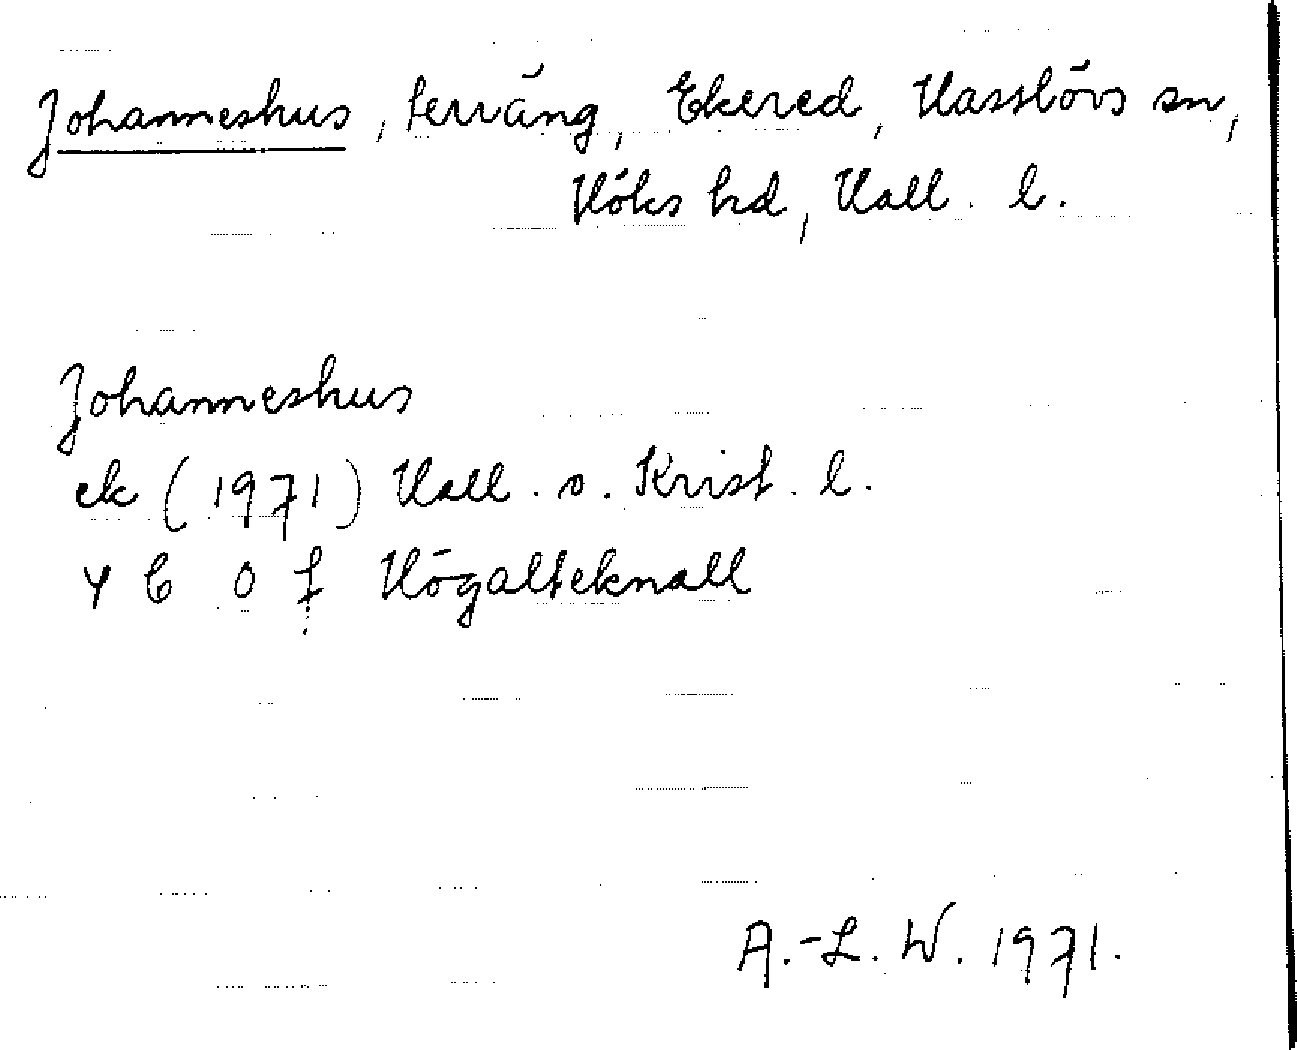 Johanneshus, terräng, Ekered, Hasslövs sn,
Höks hd, Hall. l.
Johanneshus
ek (1971) Hall. o. Krist. l.
4 C 0 f Högalteknall
A.-L. W. 1971.